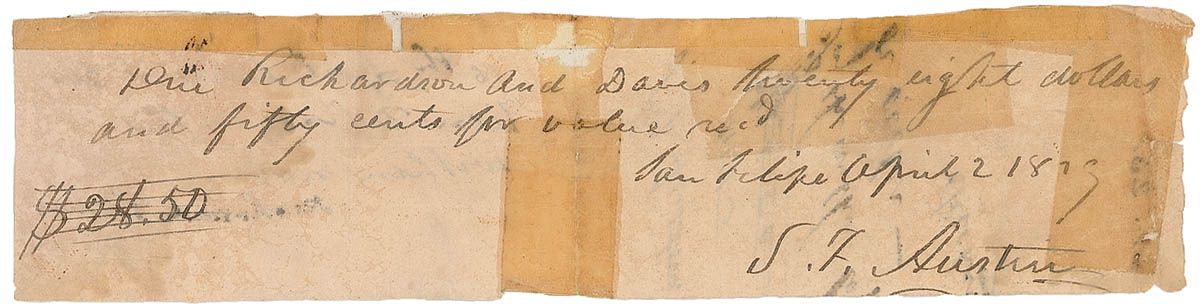 Due Richardson and Davis twenty eight dollars
and fifty cents for value recd
San Felipe April 2 1829
$28.50
S. F. Austin